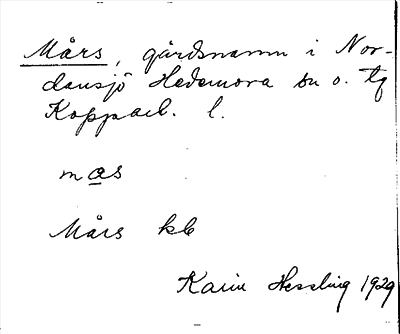 Mårs, gårdsnamn i Nor-
dansjö Hedemora sn o. tg
Kopparb. l.
mas
Mårs kb
Karin Hessling 1929